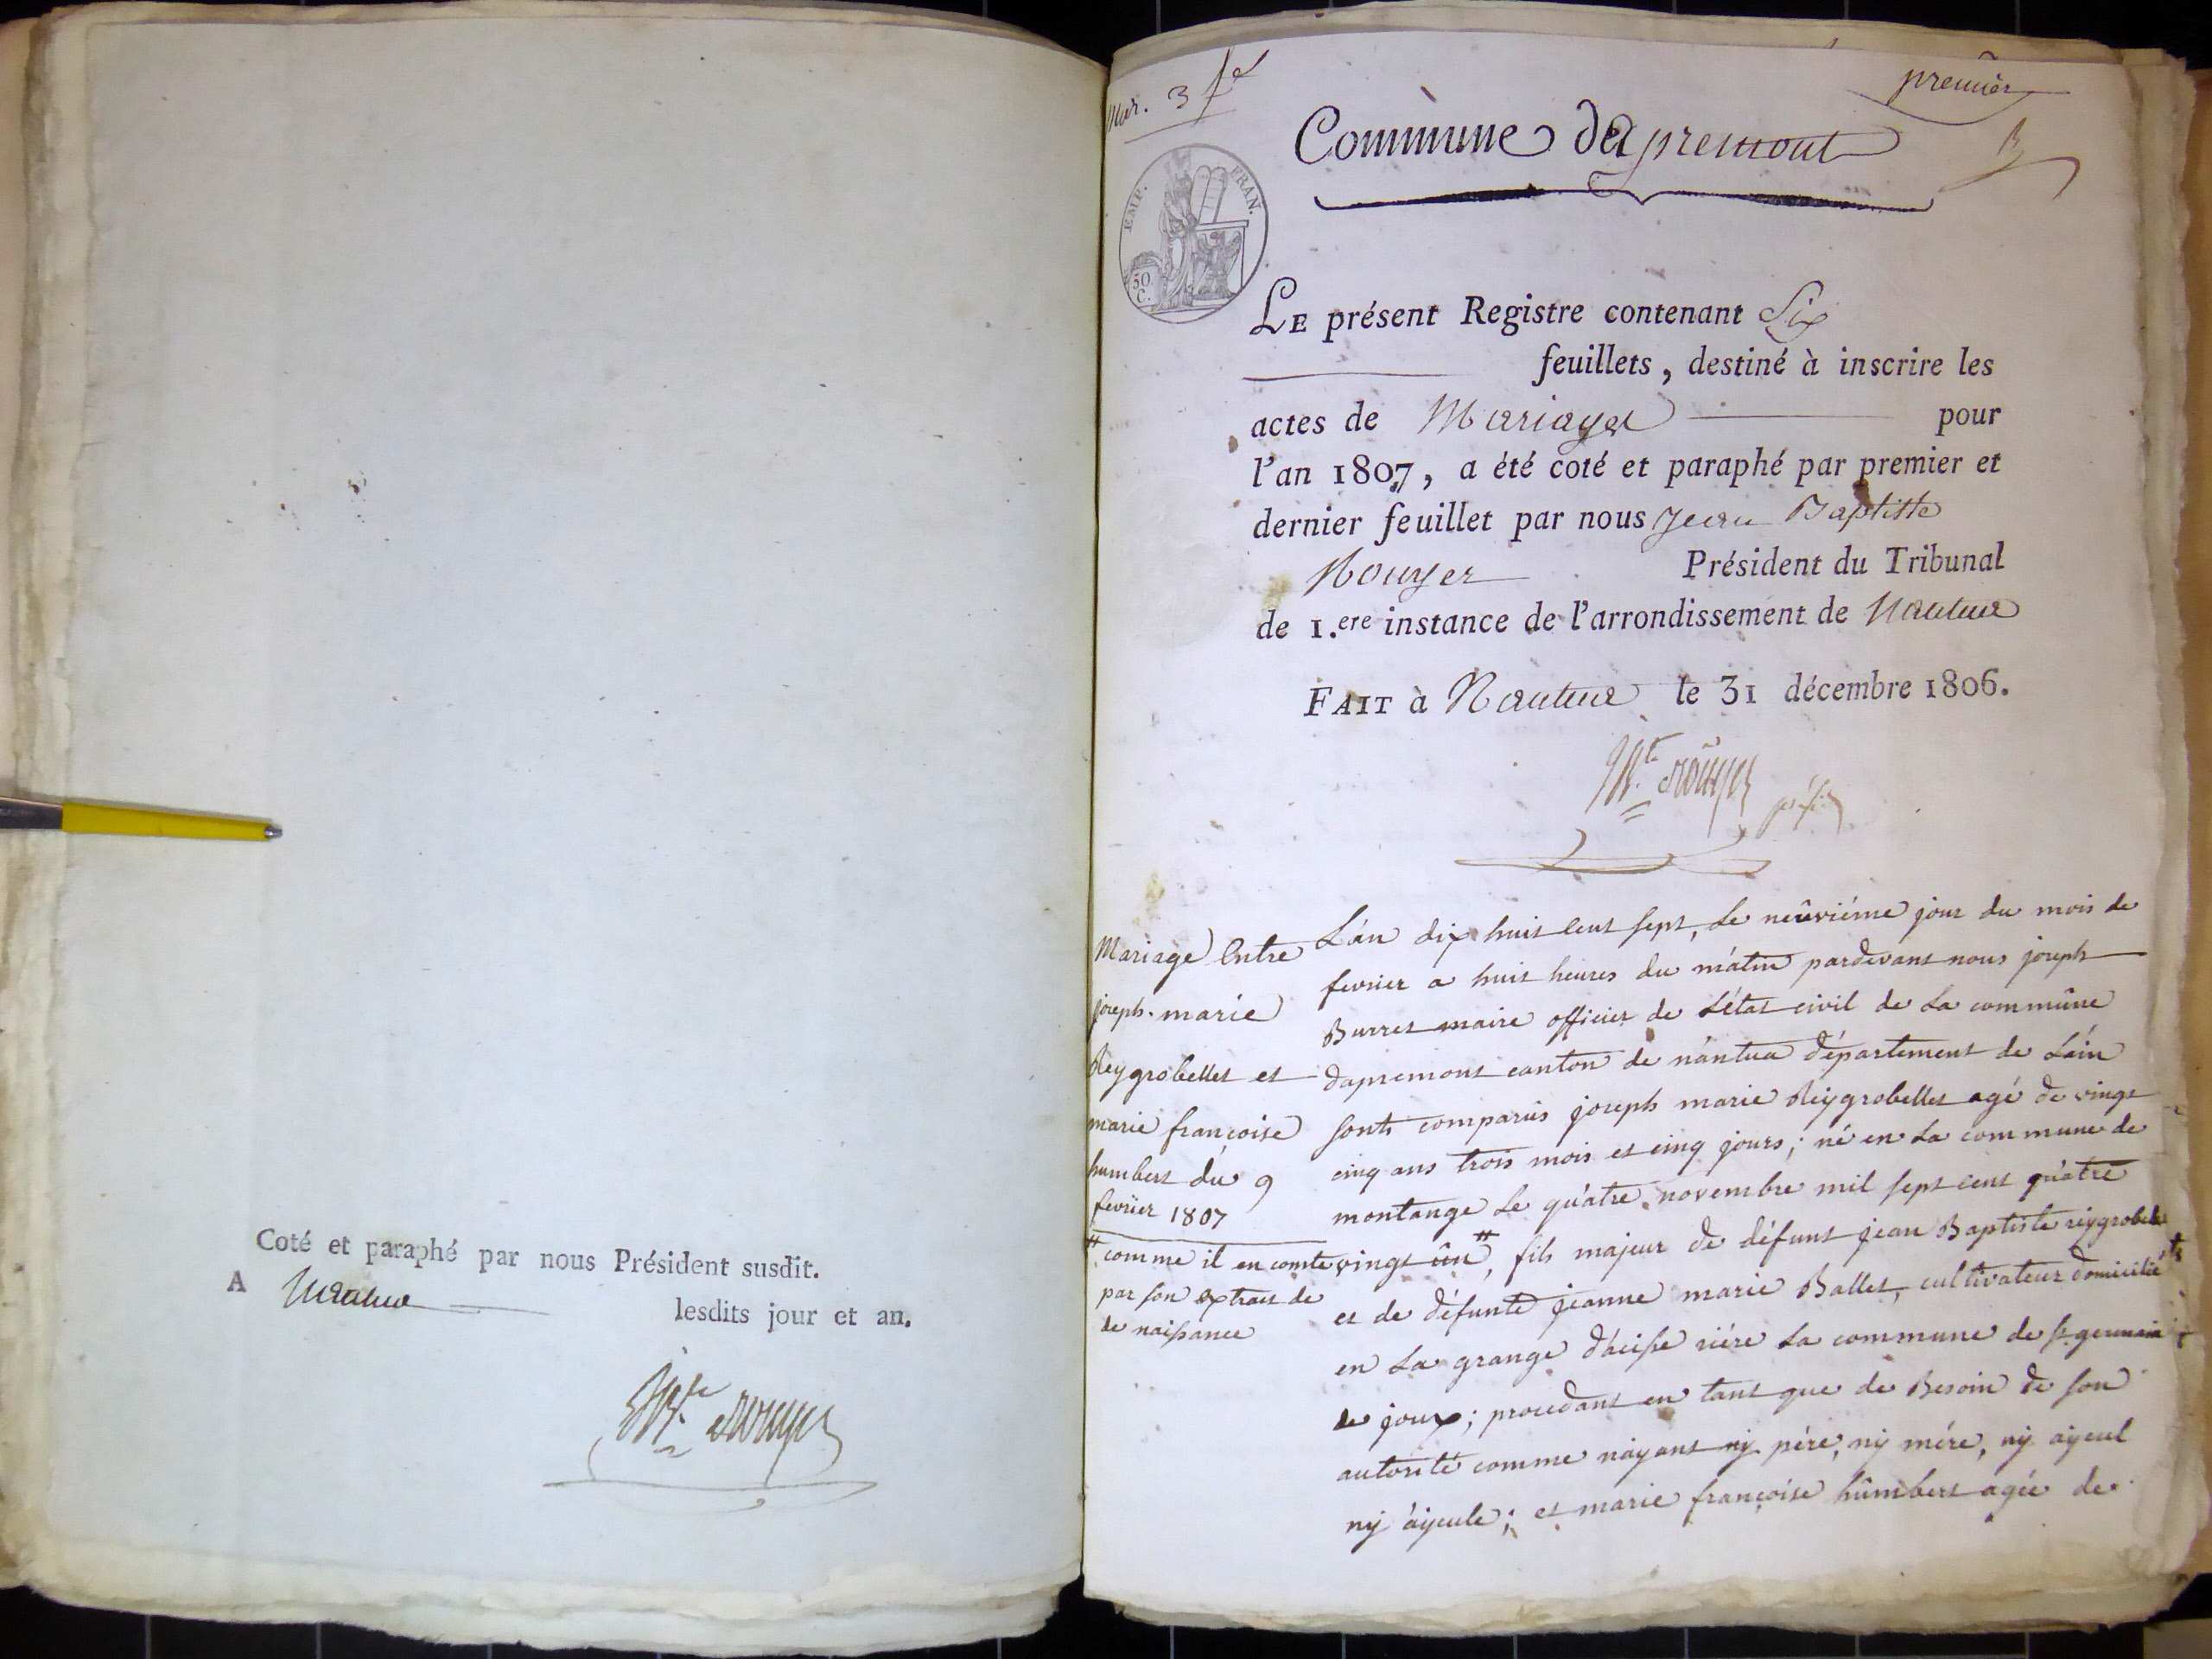 Coté et paraphé par nous Président susdit.
A Nantua lesdits jour et an.
Mar. 3
premier
Commune d'apremont
EMP. FRAN.
50
C.
LE présent Registre contenant Six
feuillets, destiné à inscrire les
actes de Mariages pour
l'an 1807, a été coté et paraphé par premier et
dernier feuillet par nous Jean Baptiste
Rouyer Président du Tribunal
de 1.ere instance de l'arrondissement de Nantua
FAIT à Nantua le 31 décembre 1806.
Mariage Entre
joseph-marie
Reygrobellet et
marie françoise
humbert du 9
fevrier 1807
# comme il en comte
par son extrait de
de naissance
L'an dix huit cent sept, le neûviéme jour du mois de
fevrier a huit heures du mátin pardevant nous joseph
Burret maire officier de L'état civil de La commûne
dapremont canton de nántua département de Láin
sonts comparus joseph marie Réygrobellet agé de vingt
cinq ans trois mois et cinq jours; né en La commune de
montange Le quatre novembre mil sept cent quátre
vingt ûn #, fils majeur de défunt jean Baptiste réygrobellet
et de défunte jeanne marie Ballet, cultivateur domicilié
en La grange d'acisse riére La commune de st germain
de joux; procedant en tant que de Besoin de son
autorité comme náyant ny pére, ny mére, ny áyeul
ny áyeule; et marie françoise hûmbert agée de